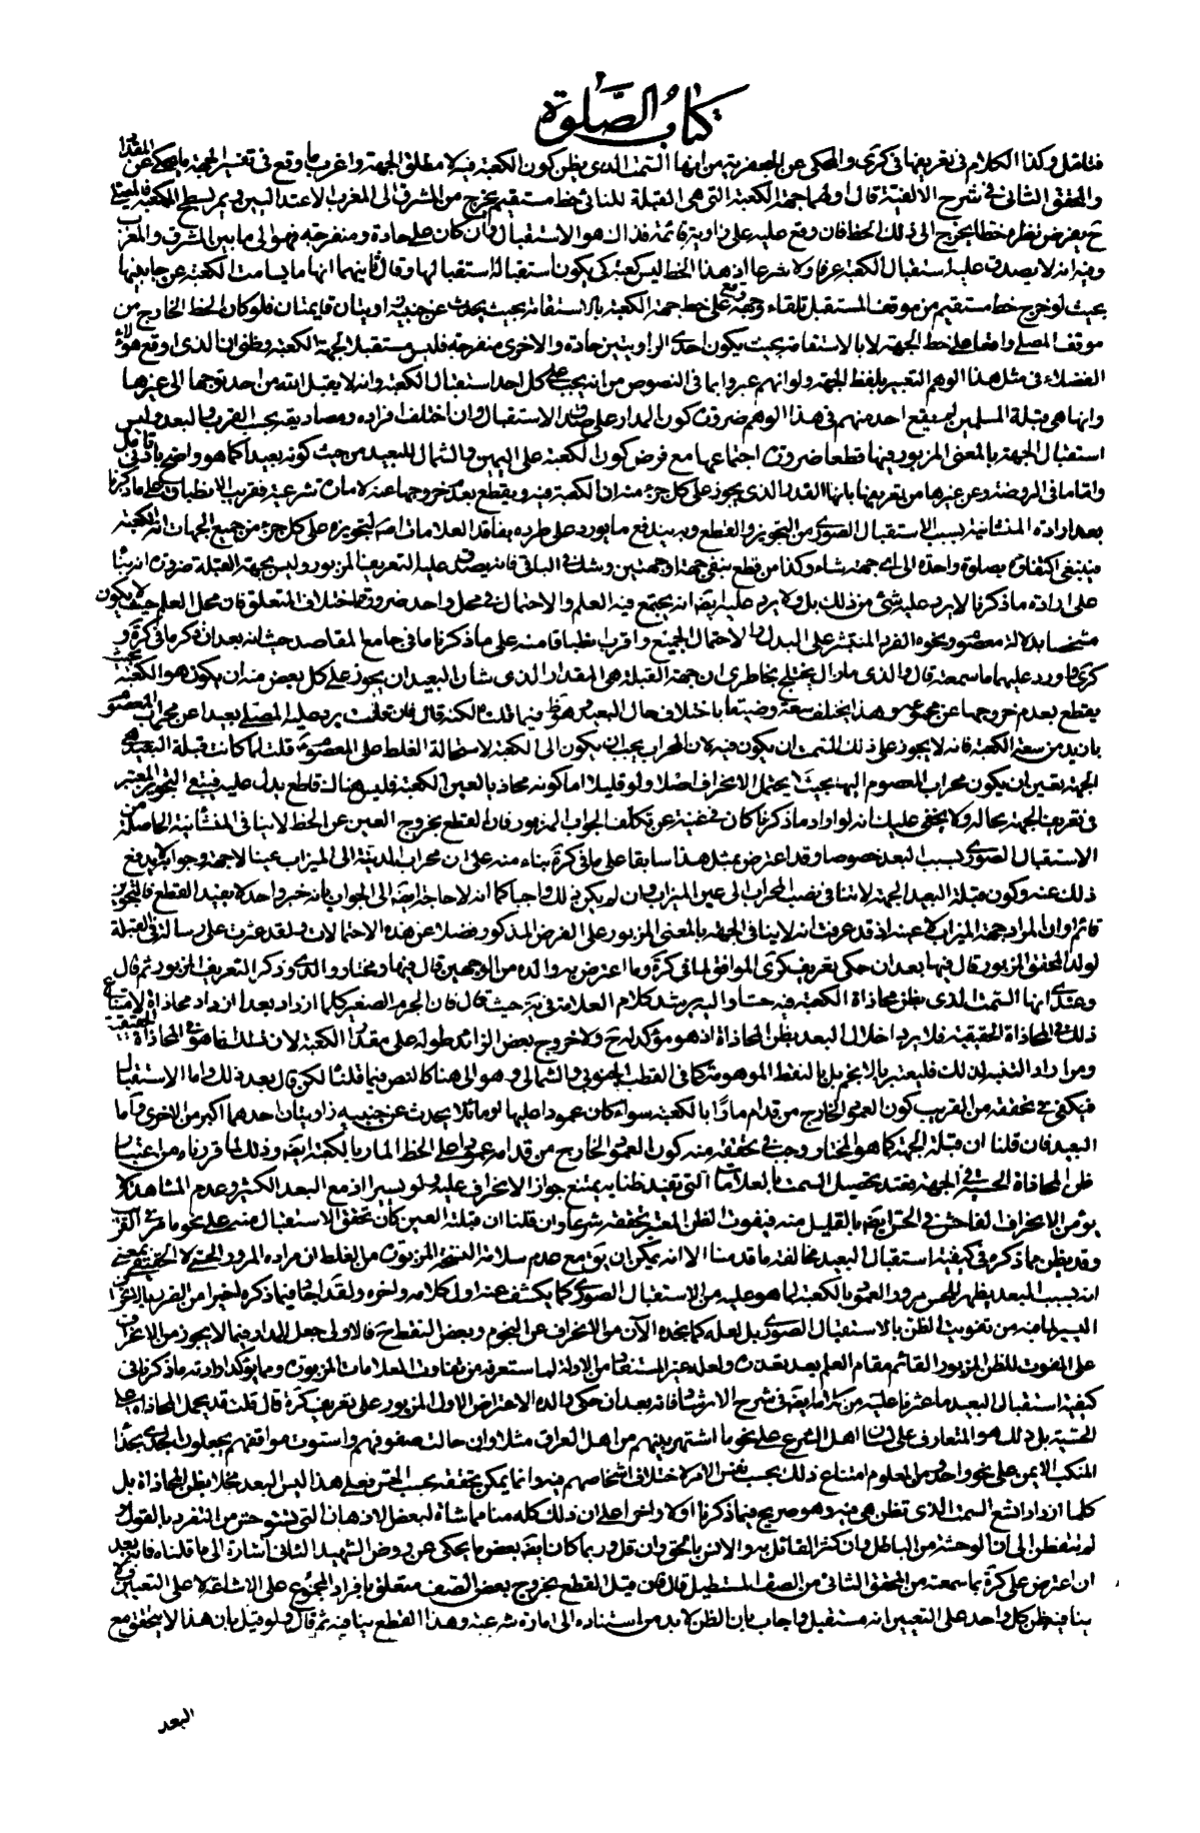 كتاب الصلوة
فتامل وكذا الكلام فى تعريفها فى كرى والمحكى عن الجعفرية من انها السمت الذى يظن كون الكعبة فيه لا مطلق الجهة واغرب ما وقع فى تفسير الجهة ما يحكى عن المقداد
والمحقق الثانى فى شرح الالفية قال اولهما جهة الكعبة التى هى القبلة للنائى خط مستقيم يخرج من المشرق الى المغرب الاعتداليين ويمر بسطح الكعبة فالمصلى
ح يفرض نظره خطا يخرج الى ذلك الخط فان وقع عليه على زاوية قائمة فذاك هو الاستقبال وان كان على حادة ومنفرجة فهو الى ما بين المشرق والمغرب
وفيه انه لا يصدق عليه استقبال الكعبة عرفا ولا شرعا اذ هذا الخط ليس كعبة كى يكون استقباله استقبالها وقال ثانيهما انها ما يسامت الكعبة عن جانبيها
بحيث لو خرج خط مستقيم من موقف المستقبل تلقاء وجهه وقع على خط جهة الكعبة بالاستقامة بحيث يحدث عن جنبيه زاويتان قائمتان فلو كان الخط الخارج من
موقف المصلى واقعا على خط الجهة لا بالاستقامة بحيث يكون احدى الزاويتين حادة والاخرى منفرجة فليس مستقبلا لجهة الكعبة وظنى ان الذى اوقع هؤلاء
الفضلاء فى مثل هذا الوهم التعبير بلفظ الجهة ولو انهم عبروا بما فى النصوص من انه يجب على كل احد استقبال الكعبة وانه لا يقبل الله من احد توجها الى غيرها
وانها هى قبلة المسلمين لم يقع احد منهم فى هذا الوهم ضرورة كون المدار على صدق الاستقبال وان اختلف افراده ومصاديقه بحسب القرب والبعد وليس
استقبال الجهة بالمعنى المزبور فيها قطعا ضرورة اجتماعها مع فرض كون الكعبة على اليمين والشمال للبعيد من حيث كونه بعيدا كما هو واضح بادنى تامل
واما ما فى الروضة وعن غيرها من تعريفها بانها القدر الذى يجوز على كل جزء منه ان الكعبة فيه ويقطع بعدم خروجها عنه لامارة شرعية فقريب الانطباق على ما ذكرنا
بعد ارادة المنشائية بسبب الاستقبال الصورى من التجويز والقطع وبه يندفع ما يورد على طرده بفاقد العلامات اصلا لتجويزه على كل جزء من جميع الجهات ان الكعبة
فينبغى اكتفاؤه بصلوة واحدة الى اى جهة شاء وكذا من قطع بنفى جهة او جهتين وشك فى الباقى فانه يصدق عليه التعريف المزبور وليس بجهة القبلة ضرورة انه بناء
على ارادة ما ذكرنا لا يرد عليه شئ من ذلك بل ولا يرد عليه ايضا انه يجتمع فيه العلم والاحتمال فى محل واحد ضرورة اختلاف المتعلق فان محل العلم حينئذ لا يكون
كرى واورد عليهما ما سمعته قال والذى ما زال يختلج بخاطرى ان جهة القبلة هى المقدار الذى شان البعيد ان يجوز على كل بعض منه ان يكون هو الكعبة بحيث
يقطع بعدم خروجها عن مجموعه وهذا يختلف سعة وضيقا باختلاف حال البعيد
بازيد من سعة الكعبة فانه لا يجوز على ذلك السمت ان يكون فيه لان المحراب يجب ان يكون الى الكعبة لاستحالة الغلط على المعصوم قلت لما كانت قبلة البعيد هى
الجهة تعين ان يكون محراب المعصوم اليها بحيث لا يحتمل الانحراف اصلا ولو قليلا اما كونه محاذيا لعين الكعبة فليس هناك قاطع يدل عليه فيبقى التجويز المعتبر
فى تعريف الجهة بحاله ولا يخفى عليك انه لو اراد ما ذكرنا كان فى غنية عن تكلف الجواب المزبور فان القطع بخروج العين عن الخط لا ينافى المنشائية الحاصلة من
الاستقبال الصورى بسبب البعد خصوصا وقد اعترض بمثل هذا سابقا على ما فى كرى بناء منه على ان محراب المدينة الى الميزاب عينا لا جهة وجوابه لا يدفع
ذلك عنه وكون قبلة البعيد الجهة لا ينافى نصب المحراب الى عين الميزاب وان لم يكن ذلك واجبا كما انه لا حاجة ايضا الى الجواب بانه خبر واحد لا يفيد القطع فالتجويز
قائم وان المراد جهة الميزاب لا عينه اذ قد عرفت انه لا ينافى الجهة بالمعنى المزبور على الفرض المذكور فضلا عن هذه الاحتمالات ولقد عثرت على رسالة فى القبلة
لولد المحقق المزبور قال فيها بعد ان حكى تعريف كرى الموافق لما فى كرة وما اعترض به والده من الوجهين قال فيها ومختار والدى وذكر التعريف المزبور ثم قال
وعندى انها السمت الذى يظن محاذاة الكعبة فيه حسا واليه يرشد كلام العلامة فى ير حيث قال فان الجرم الصغير كلما ازداد بعدا ازداد محاذاة لامتناع
ذلك فى المحاذاة الحقيقية فلا يرد اخلال البعد بظن المحاذاة اذ هو مؤكد له ح ولا خروج بعض الزائد طوله على مقدار الكعبة لان ذلك انما هو فى المحاذاة الحقيقية
فيكفى فى تحققه من القريب كون العمود الخارج من قدامه مارا بالكعبة سواء كان عمودا عليها او مائلا يحدث عن جنبيه زاويتان احدهما اكبر من الاخرى واما
البعيد فان قلنا ان قبلته الجهة كما هو المختار وجب فى تحققه منه كون العمود الخارج من قدامه عمودا على الخط المار بالكعبة ايضا وذلك لما قررناه من اعتبار
ظن المحاذاة الحسية فى الجهة بقيد تحصيل السمت بالعلامات التى تفيد ظنا به يمتنع جواز الانحراف عليه ولو يسيرا اذ مع البعد الكثير وعدم المشاهدة لا
يؤمن الانحراف الفاحش فى الحس ايضا بالقليل منه فيفوت الظن المعتبر تحققه شرعا وان قلنا ان قبلته العين كان تحقق الاستقبال منه على نحو ما مر فى القرب
وقد يظن مما ذكر فى كيفية استقبال البعيد مخالفة ما قدمنا الا انه يمكن ان
انه بسبب البعد يظهر للحس مرور العمود بالكعبة لما هو عليه من الاستقبال الصورى كما يكشف عنه اول كلامه واخره ولقد اجاد فيما ذكره اخيرا من الضرر بالانحراف
اليسير لما فيه من تفويت الظن بالاستقبال الصورى بل لعله كما نجده الآن من الانحراف عن النجوم وبعض النقط ح فالاولى جعل المدار فيما لا يجوز من الانحراف
على المفوت للظن المزبور القائم مقام العلم بعد تعذره ولعله غير المستفاد من الادلة لما ستعرفه من تفاوت العلامات المزبورة ومما يؤكد ارادته ما ذكرنا فى
كيفية استقبال البعيد ما عثرنا عليه من
الحسية بل ذلك هو المتعارف على لسان اهل الشرع على نحو ما اشتهر بينهم من اهل العراق مثلا وان حالت صفوفهم واستوت مواقفهم يجعلون الجدى بحذاء
المنكب الايمن على نحو واحد ومن المعلوم امتناع ذلك بحسب نفس الامر لاختلاف اشخاصهم فيه وانما يمكن تحققه بحسب الحس فعلى هذا ليس البعد مخلا بظن المحاذاة بل
كلما ازداد اتسع السمت الذى تظن هى فيه وهو صريح فيما ذكرنا اولا واخرا على ان ذلك كله منا مماشاة لبعض الاذهان التى تستوحش من التفرد بالقول
لم يتفطن الى ان الوحشة من الباطل وان كثر القائل به والانس بالحق وان قل وربما كان ايضا بعض ما يحكى عن روض الشهيد الثانى اشارة الى ما قلناه فانه بعد
ان اعترض على كرى بما سمعته من المحقق الثانى من الصف المستطيل قال فان قيل القطع بخروج بعض الصف متعلق بافراد المجموع على الاشاعة لا على التعيين فلا
ينافيه ظن كل واحد على التعيين انه مستقبل واجاب بان الظن لا بد من استناده الى امارة شرعية وهذا القطع ينافيه ثم قال ولو قيل بان هذا لا يتحقق مع
البعد